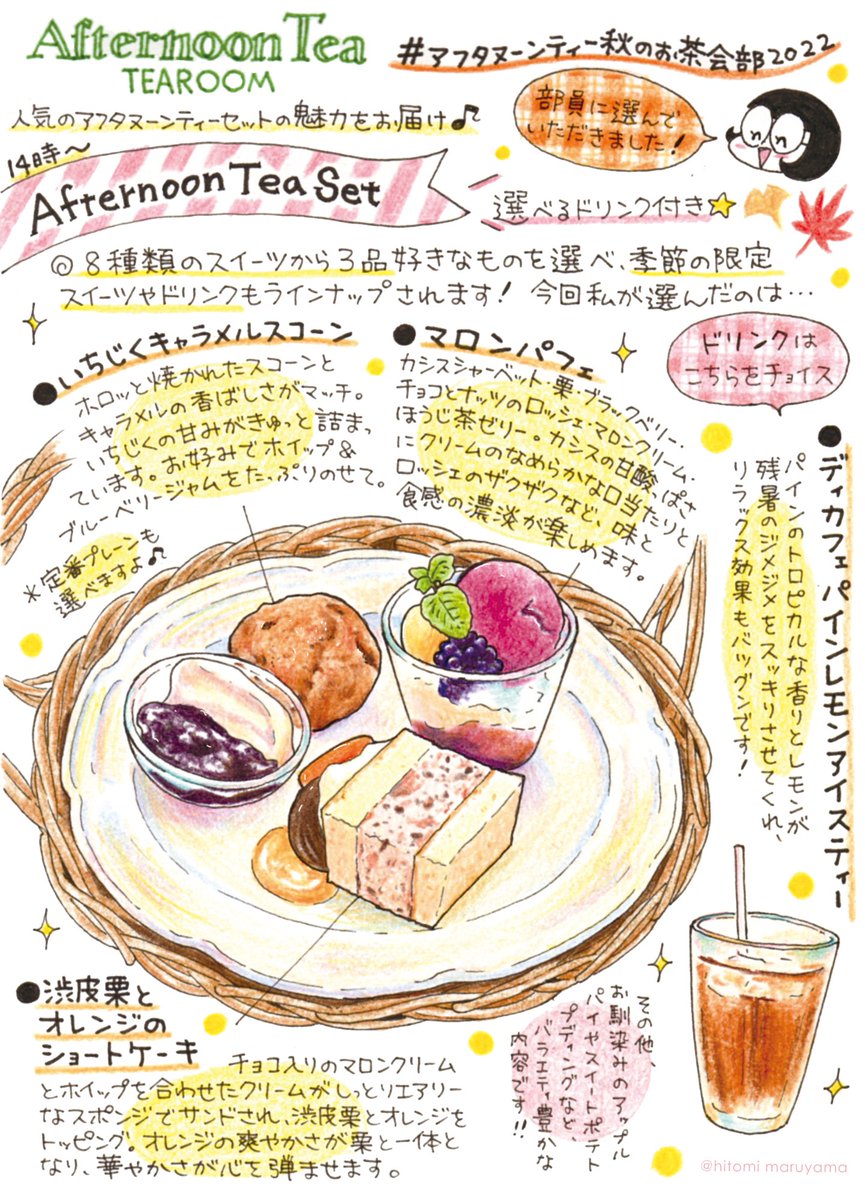 Afternoon Tea
TEAROOM
#アフタヌーンティー秋のお茶会部2022
部員に選んで
いただきました!
人気のアフタヌーンティーセットの魅力をお届け♪
14時〜
Afternoon Tea Set
選べるドリンク付き☆
◎8種類のスイーツから3品好きなものを選べ、季節の限定
スイーツやドリンクもラインナップされます! 今回私が選んだのは…
●いちじくキャラメルスコーン
ホロッと焼かれたスコーンと
キャラメルの香ばしさがマッチ。
いちじくの甘みがぎゅっと詰まっ
ています。お好みでホイップ&
ブルーベリージャムをたっぷりのせて。
*定番プレーンも
選べますよ♪
●マロンパフェ
カシスシャーベット・栗・ブラックベリー・
チョコとナッツのロッシェ・マロンクリーム・
ほうじ茶ゼリー。カシスの甘酸っぱさ
にクリームのなめらかな口当たりと
ロッシェのザクザクなど、味と
食感の濃淡が楽しめます。
ドリンクは
こちらをチョイス
●ディカフェパインレモンアイスティー
パインのトロピカルな香りとレモンが
残暑のジメジメをスッキリさせてくれ、
リラックス効果もバッグンです!
●渋皮栗と
オレンジの
ショートケーキ
チョコ入りのマロンクリーム
とホイップを合わせたクリームがしっとりエアリー
なスポンジでサンドされ、渋皮栗とオレンジを
トッピング。オレンジの爽やかさが栗と一体と
なり、華やかさが心を弾ませます。
その他、
お馴染みのアップル
パイやスイートポテト
プディングなど、
バラエティ豊かな
内容です!!
@hitomi maruyama